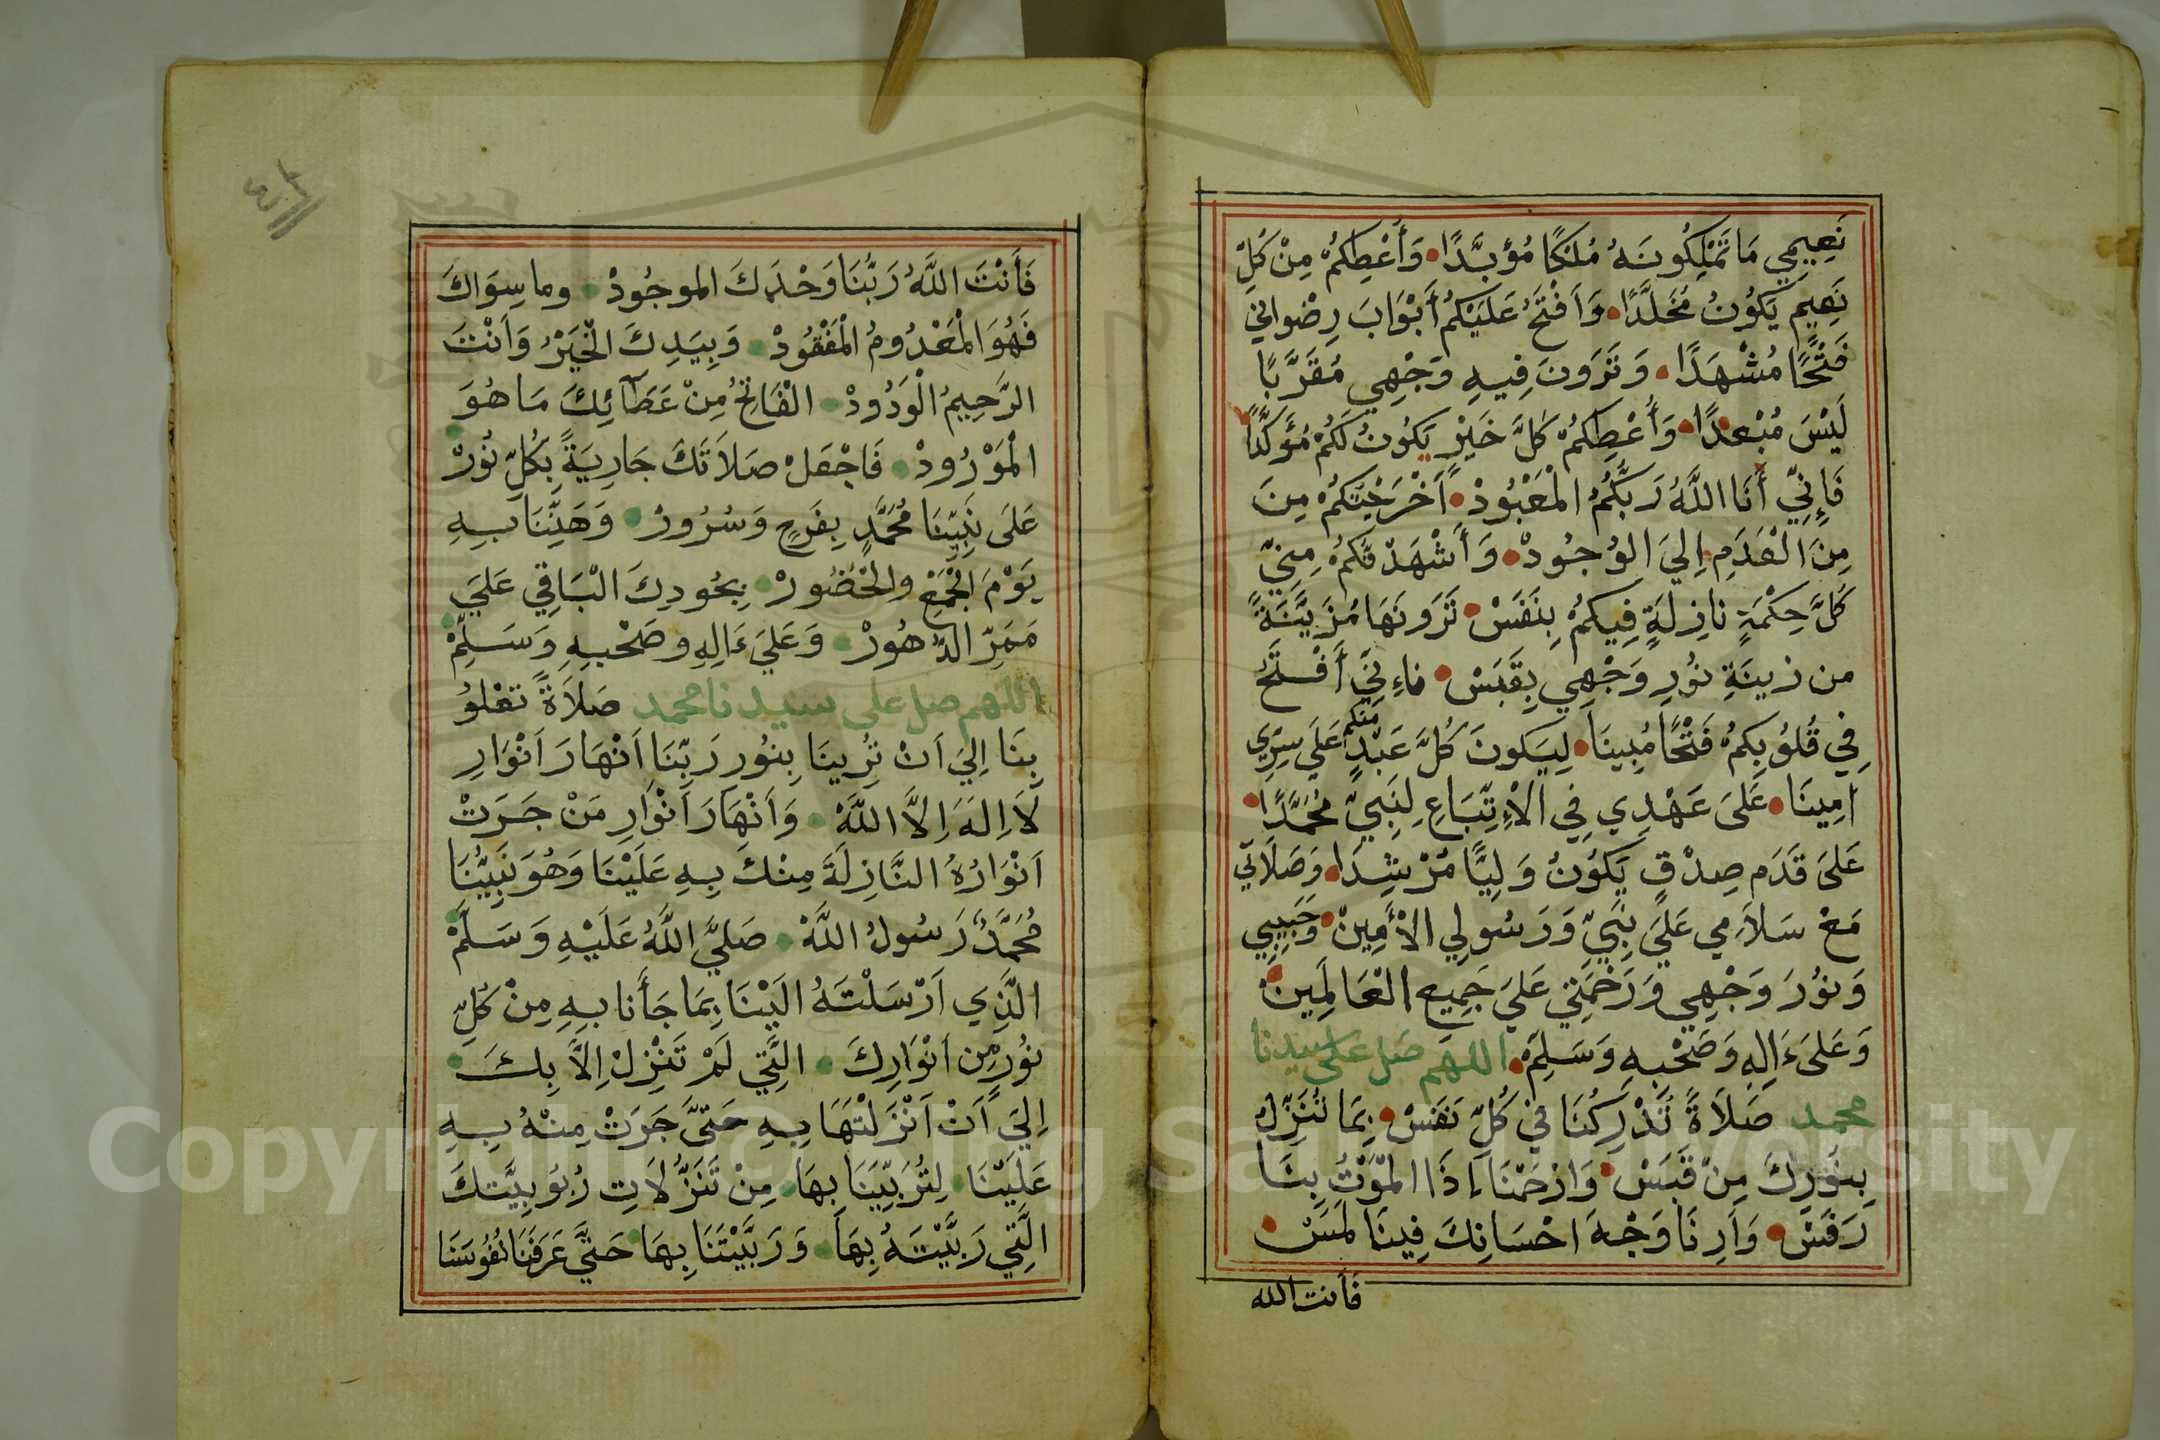 نَعِيمِي مَا تَمْلِكُونَهُ مُلْكًا مُؤَبَّدًا وَأُعْطِكُمْ مِنْ كُلِّ
نَعِيمٍ يَكُونُ مُخَلَّدًا وَأَفْتَحُ عَلَيْكُمْ أَبْوَابَ رِضْوانِي
فَتْحًا مُشْهَدًا وَتَرَوْنَ فِيهِ وَجْهِي مُقَرَّبًا
لَيْسَ مُبْعَدًا وَأُعْطِكُمْ كُلَّ خَيْرٍ يَكُونُ لَكُمْ مُؤَكَّدًا
فَإِنِّي أَنَا اللَّهُ رَبُّكُمُ الْمَعْبُودْ أَخْرَجْتُكُمْ مِنَ
مِنَ الْعَدَمِ اِلَي الوُجُودْ وَأَشْهَدْتُكُمْ مِنِّي
كُلَّ حِكْمَةٍ نازِلَةٍ فِيكُمْ بِنَفَسْ تَرَوْنَهَا مُزَيَّنَةً
من زِينَةِ نُورِ وَجْهِي بِقَبَسْ فاءِنِّي أَفْتَحُ
فِي قُلُوبِكُمْ فَتْحًا مُبِينَا لِيَكونَ كُلَّ عَبْدٍ مِنكم عَلَي سِرِّي
اَمِينَا عَلَى عَهْدِي فِي الْاِتِّبَاعِ لِنَبِيِّ مُحَمَّدًا
عَلَى قَدَمِ صِدْقٍ يَكُونُ وَلِيًّا مُرْشِدَا وَصَلَاتِي
مَعْ سَلاَمِي عَلَي نَبِيِّ وَرَسُولِي الْأَمِينْ وَحَبِيبِي
وَنُورَ وَجْهِي وَرَحْمَتِي عَلَيَ جَمِيعِ الْعَالَمِينْ
وَعَلىَ ءَالِهِ وَصَحْبِهِ وَسَلِمْ اللهم صل على سيدنا
محمد صَلاَةً تُدْرِكُنَا فِي كُلِّ نَفَسْ بِمَا تُنَزِّلُ
بِنُورِكَ مِنْ قَبَسْ وَارْحَمْنَا اِذَا الْمَوْتُ بِنَا
رَفَسْ وَاَرِنَا وَجْهَ احْسَانِكَ فِينَا لَمَسْ
فَأَنت الله
فَأَنْتَ اللَّهُ رَبُّنَا وَحْدَكَ الموجُودْ وما سِوَاكَ
فَهُوَ الْمَعْدُومُ الْمَفْقُودْ وَبِيَدِكَ الْخَيْرُ وَاَنْتَ
الرَّحِيمُ الْوَدُودْ الْفَاتِحُ مِنْ عَطَآئِكَ مَا هُوَ
الْمَوْرُودْ فَاجْعَلْ صَلاَتَكَ جَارِيَةً بِكُلِّ نُورْ
عَلَى نَبِيِّنَا مُحَمَّدٍ بِفَرَحٍ وَسُرُورْ وَهَنِّنَا بِهِ
يَوْمَ الْجَمْعِ والْحُضُورْ بِجُودِكَ الْبَاقِي عَلَيَ
مَمَرِّ الدُّهُورْ وَعَلَيَ ءَالِهِ وصَحْبِهِ وَسَلِّمْ
اللهم صل على سيدنا محمد صَلاَةً تَعْلُو
بِنَا اِلَيَ اَنْ تُرِينَا بِنُورِ رَبِّنَا اَنْهَارَ اَنْوَارِ
لاَاِلَهَ اِلاَّ اللَّهْ وَاَنْهَارَ اَنْوَارِ مَنْ جَرَتْ
اَنْوَارُهُ النَّازِلَةَ مِنْكَ بِهِ عَلَيْنَا وَهُوَ نَبِيُّنَا
مُحَمَّدٌ رَسُولُ اللَّهْ صَلَيَّ اللَّهُ عَلَيْهِ وَسَلَّمْ
الَّذِي اَرْسَلْتَهُ الَيْنَا بِمَا جَأَنا بِهِ مِنْ كُلِّ
نُورٍ مِن اَنْوَارِكَ الَّتِي لَمْ تَنْزِلْ اِلاَّ بِكَ
اِلَيَ اَنْ اَنْزَلْتَهَا بِهِ حَتَّيَ جَرَتْ مِنْهُ بِهِ
عَلَيْنَا لِتُرَبِّيَنَا بِهَا مِنْ تَنَزُّلاَتِ رُبُوبِيَّتِكَ
الَّتِي رَبَّيْتَهُ بِهَا وَرَبَّيْتَنَا بِهَا حَتَّيَ عَرَفْنَا نُفُوسَنَا
Copyright © King Saud University